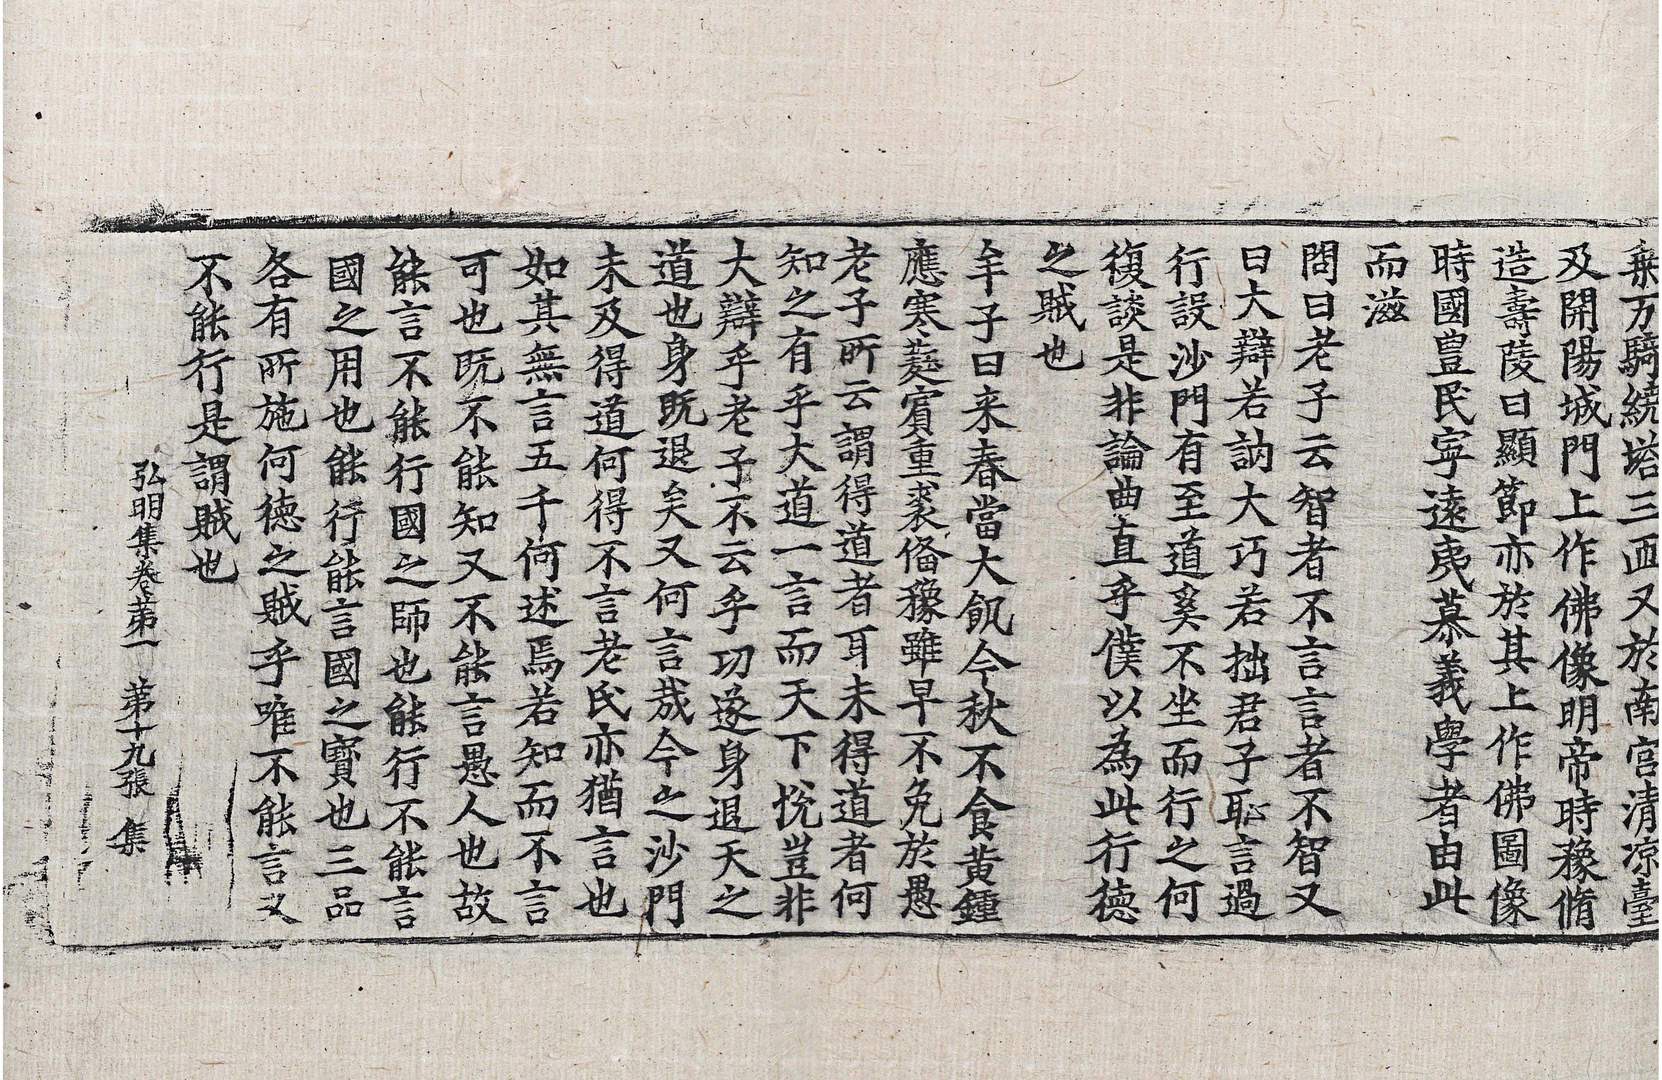 乗万騎繞塔三匝又於南宮清凉臺
及開陽城門上作佛像明帝時豫脩
造壽陵曰顯節亦於其上作佛圖像
時國豊民寧遠夷慕義學者由此
而滋
問曰老子云智者不言言者不智又
曰大辯若訥大巧若拙君子恥言過
行設沙門有至道奚不坐而行之何
復談是非論曲直乎僕以為此行德
之賊也
牟子曰来春當大飢今秋不食黄鍾
應寒蕤賓重裘俻豫雖早不免於愚
老子所云謂得道者耳未得道者何
知之有乎大道一言而天下悅豈非
大辯乎老子不云乎功遂身退天之
道也身既退矣又何言哉今之沙門
未及得道何得不言老氏亦猶言也
如其無言五千何述焉若知而不言
可也既不能知又不能言愚人也故
能言不能行國之師也能行不能言
國之用也能行能言國之寳也三品
各有所施何德之賊乎唯不能言又
不能行是謂賊也
弘明集卷第一 第十九張 集